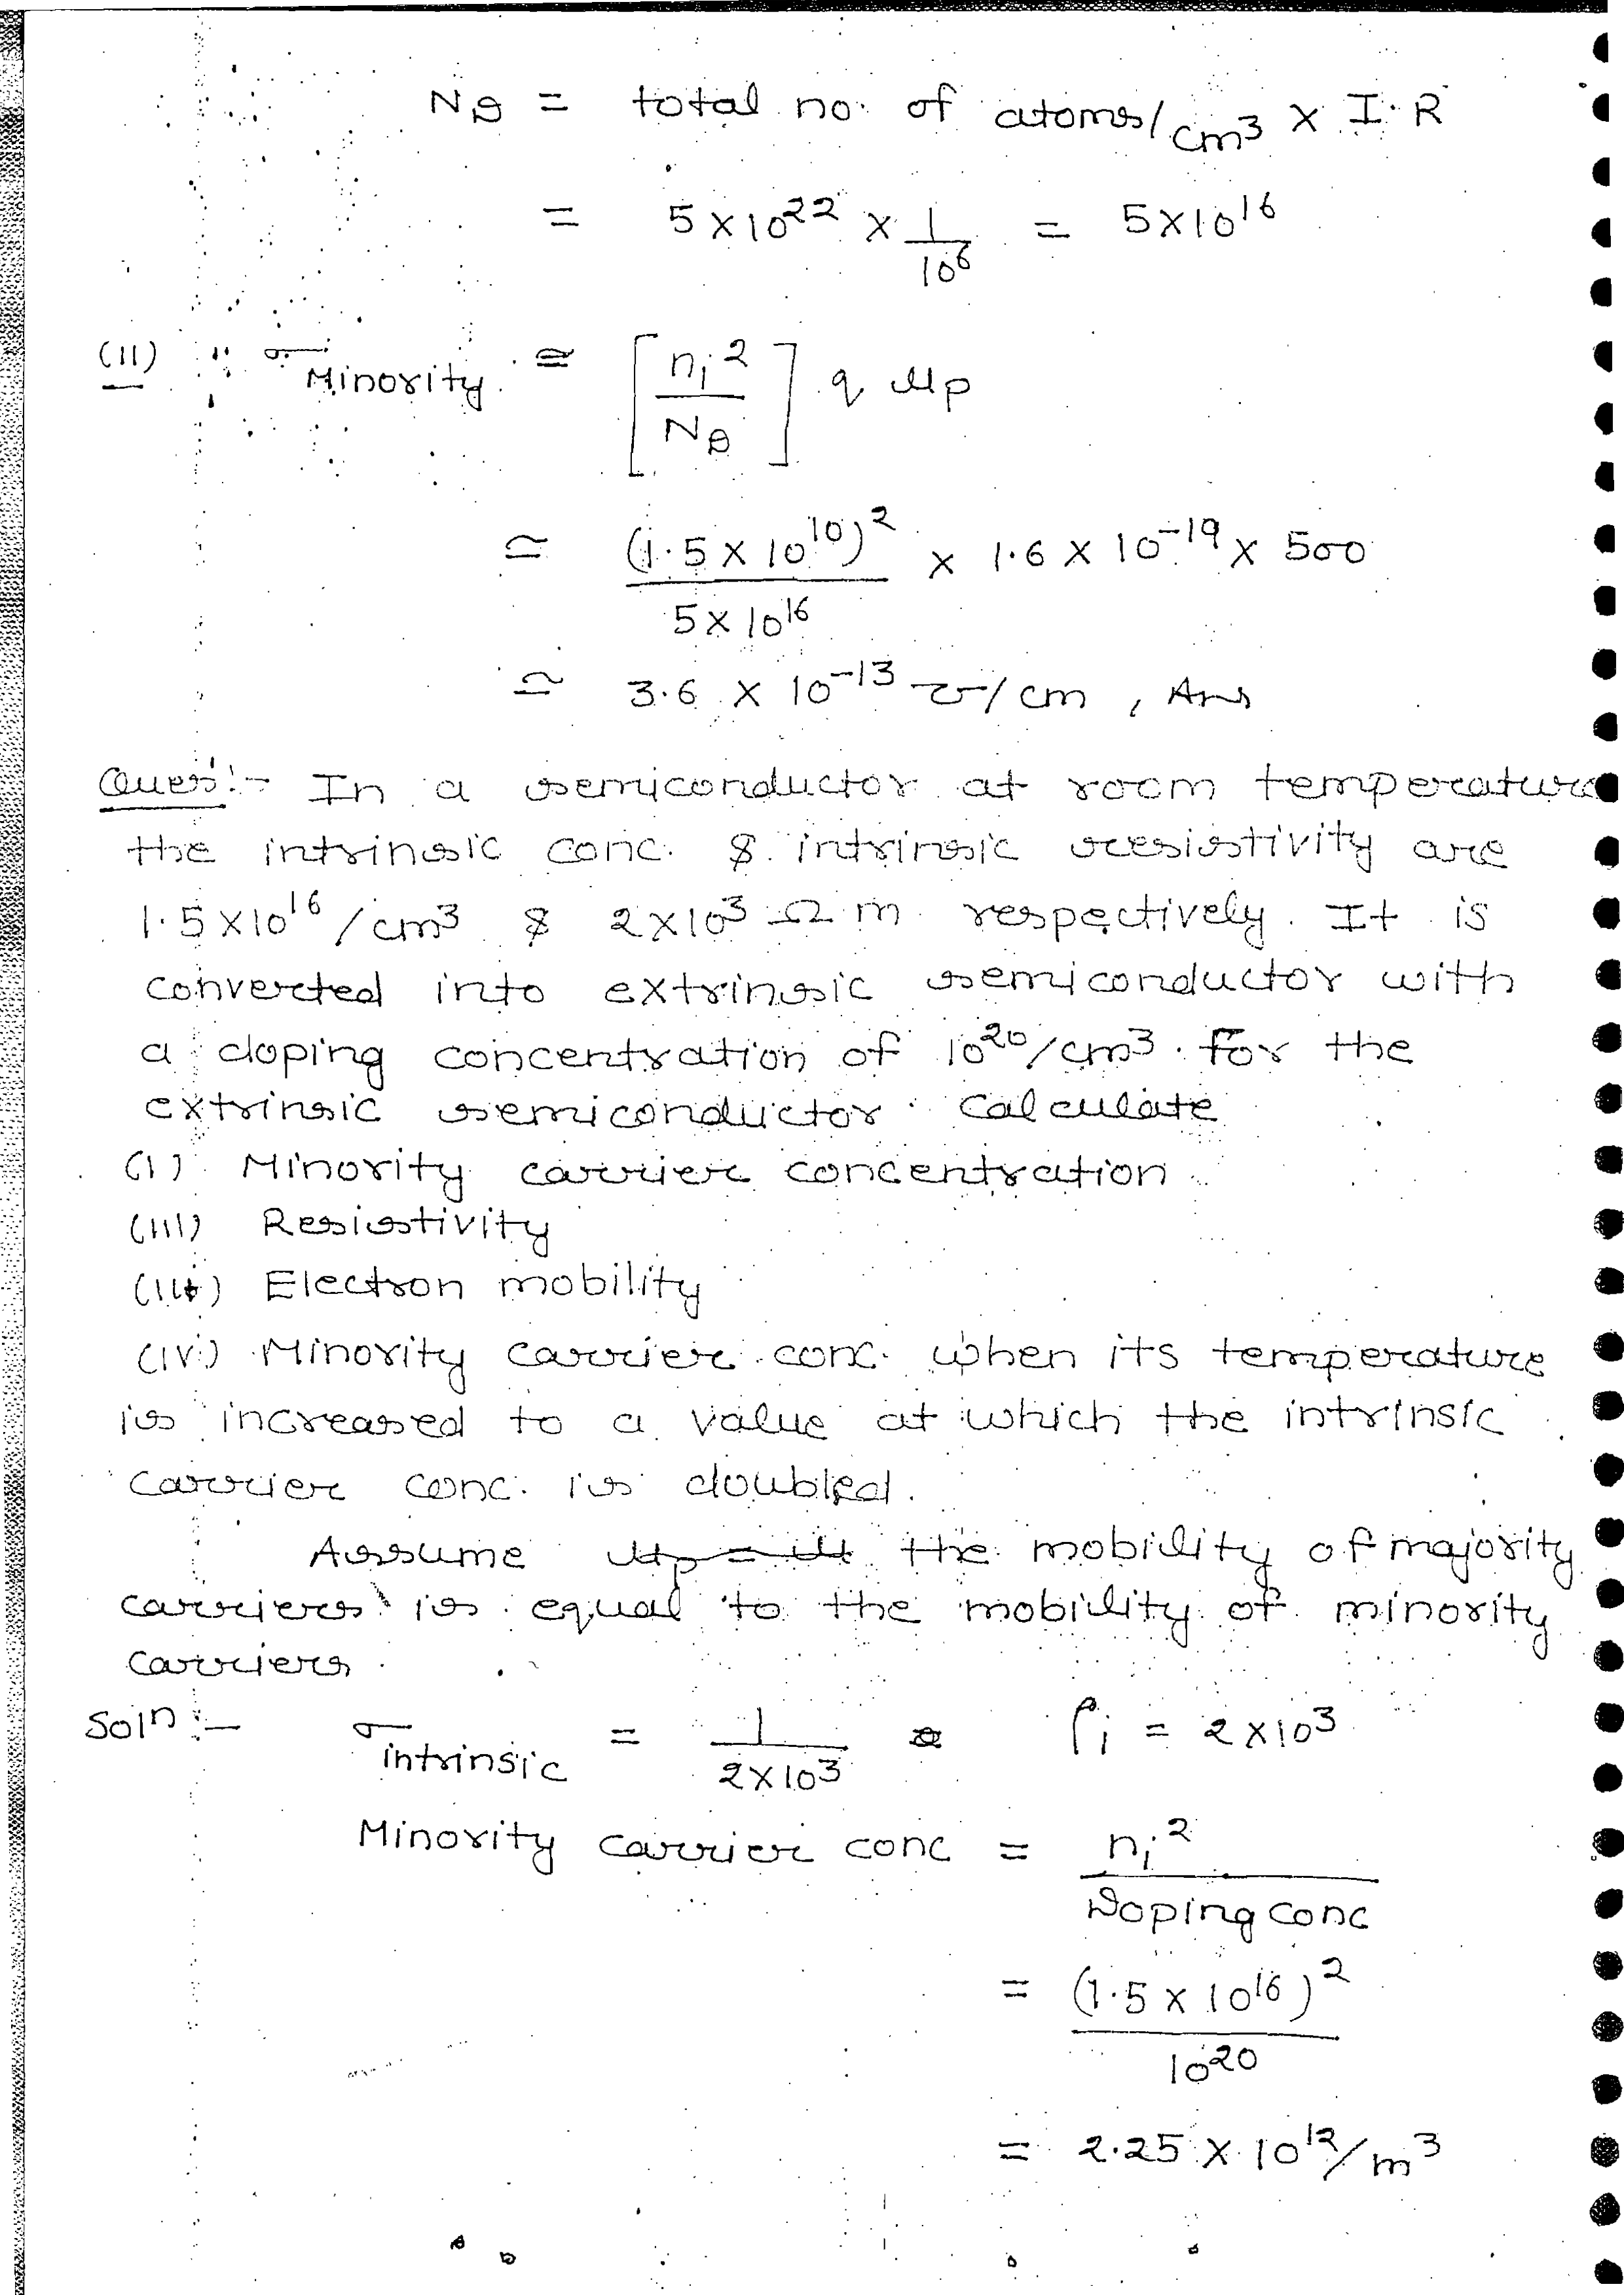 N_D = total no. of atoms/cm³ × I.R
= 5×10²² × 1/10⁶ = 5×10¹⁶
(II) σ_Minority ≅ [n_i²/N_D] q μ_p
≃ (1.5×10¹⁰)²/5×10¹⁶ × 1.6×10⁻¹⁹ × 500
≃ 3.6 × 10⁻¹³ ℧/cm , Ans
Ques:- In a semiconductor at room temperature
the intrinsic conc. & intrinsic resistivity are
1.5×10¹⁶/cm³ & 2×10³ Ω m respectively. It is
converted into extrinsic semiconductor with
a doping concentration of 10²⁰/cm³. For the
extrinsic semiconductor calculate
(I) Minority carrier concentration
(III) Resistivity
(III) Electron mobility
(IV) Minority carrier conc. when its temperature
is increased to a value at which the intrinsic
carrier conc. is doubled.
Assume the mobility of majority
carriers is equal to the mobility of minority
carriers.
Solⁿ:- σ_intrinsic = 1/2×10³ ρ_i = 2×10³
Minority carrier conc = n_i²/Doping conc
= (1.5×10¹⁶)²/10²⁰
= 2.25×10¹²/m³